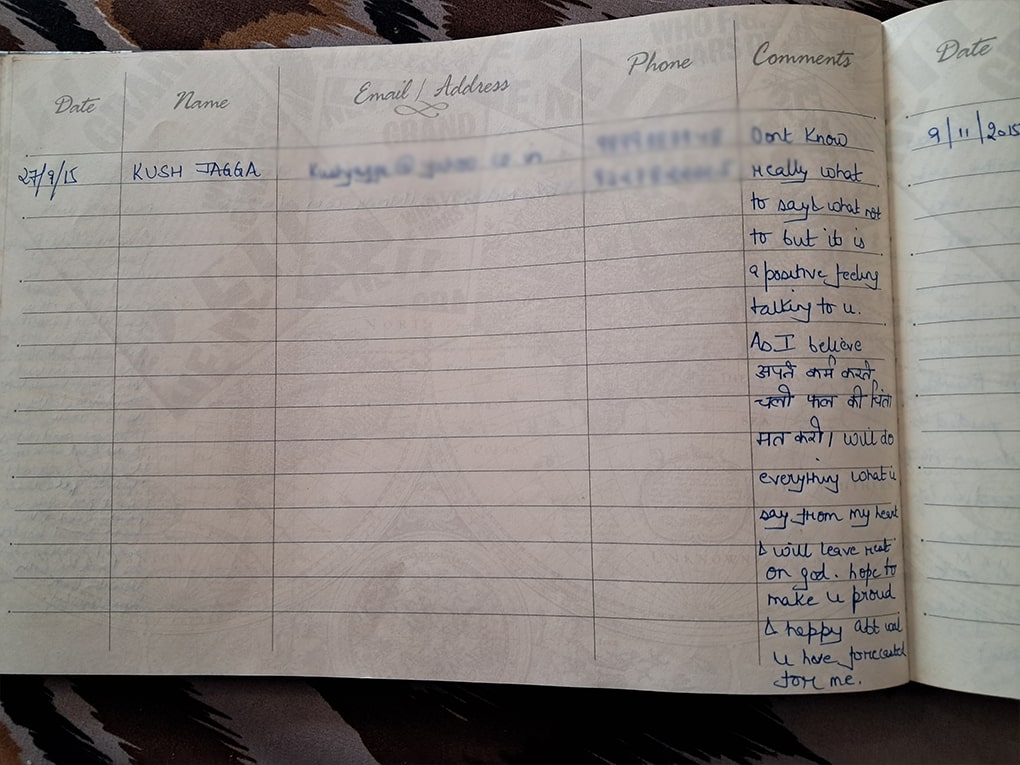 Date Name Email / Address Phone Comments Date
27/9/15 KUSH JAGGA Dont Know 9/11/2015
really what
to say & what not
to but it is
a positive feeling
talking to u.
As I believe
अपने कर्म करते
चलो फल की चिंता
मत करो। will do
everything what u
say from my heart
& will leave rest
on god. hope to
make u proud
& happy abt
u have forecasted
for me.